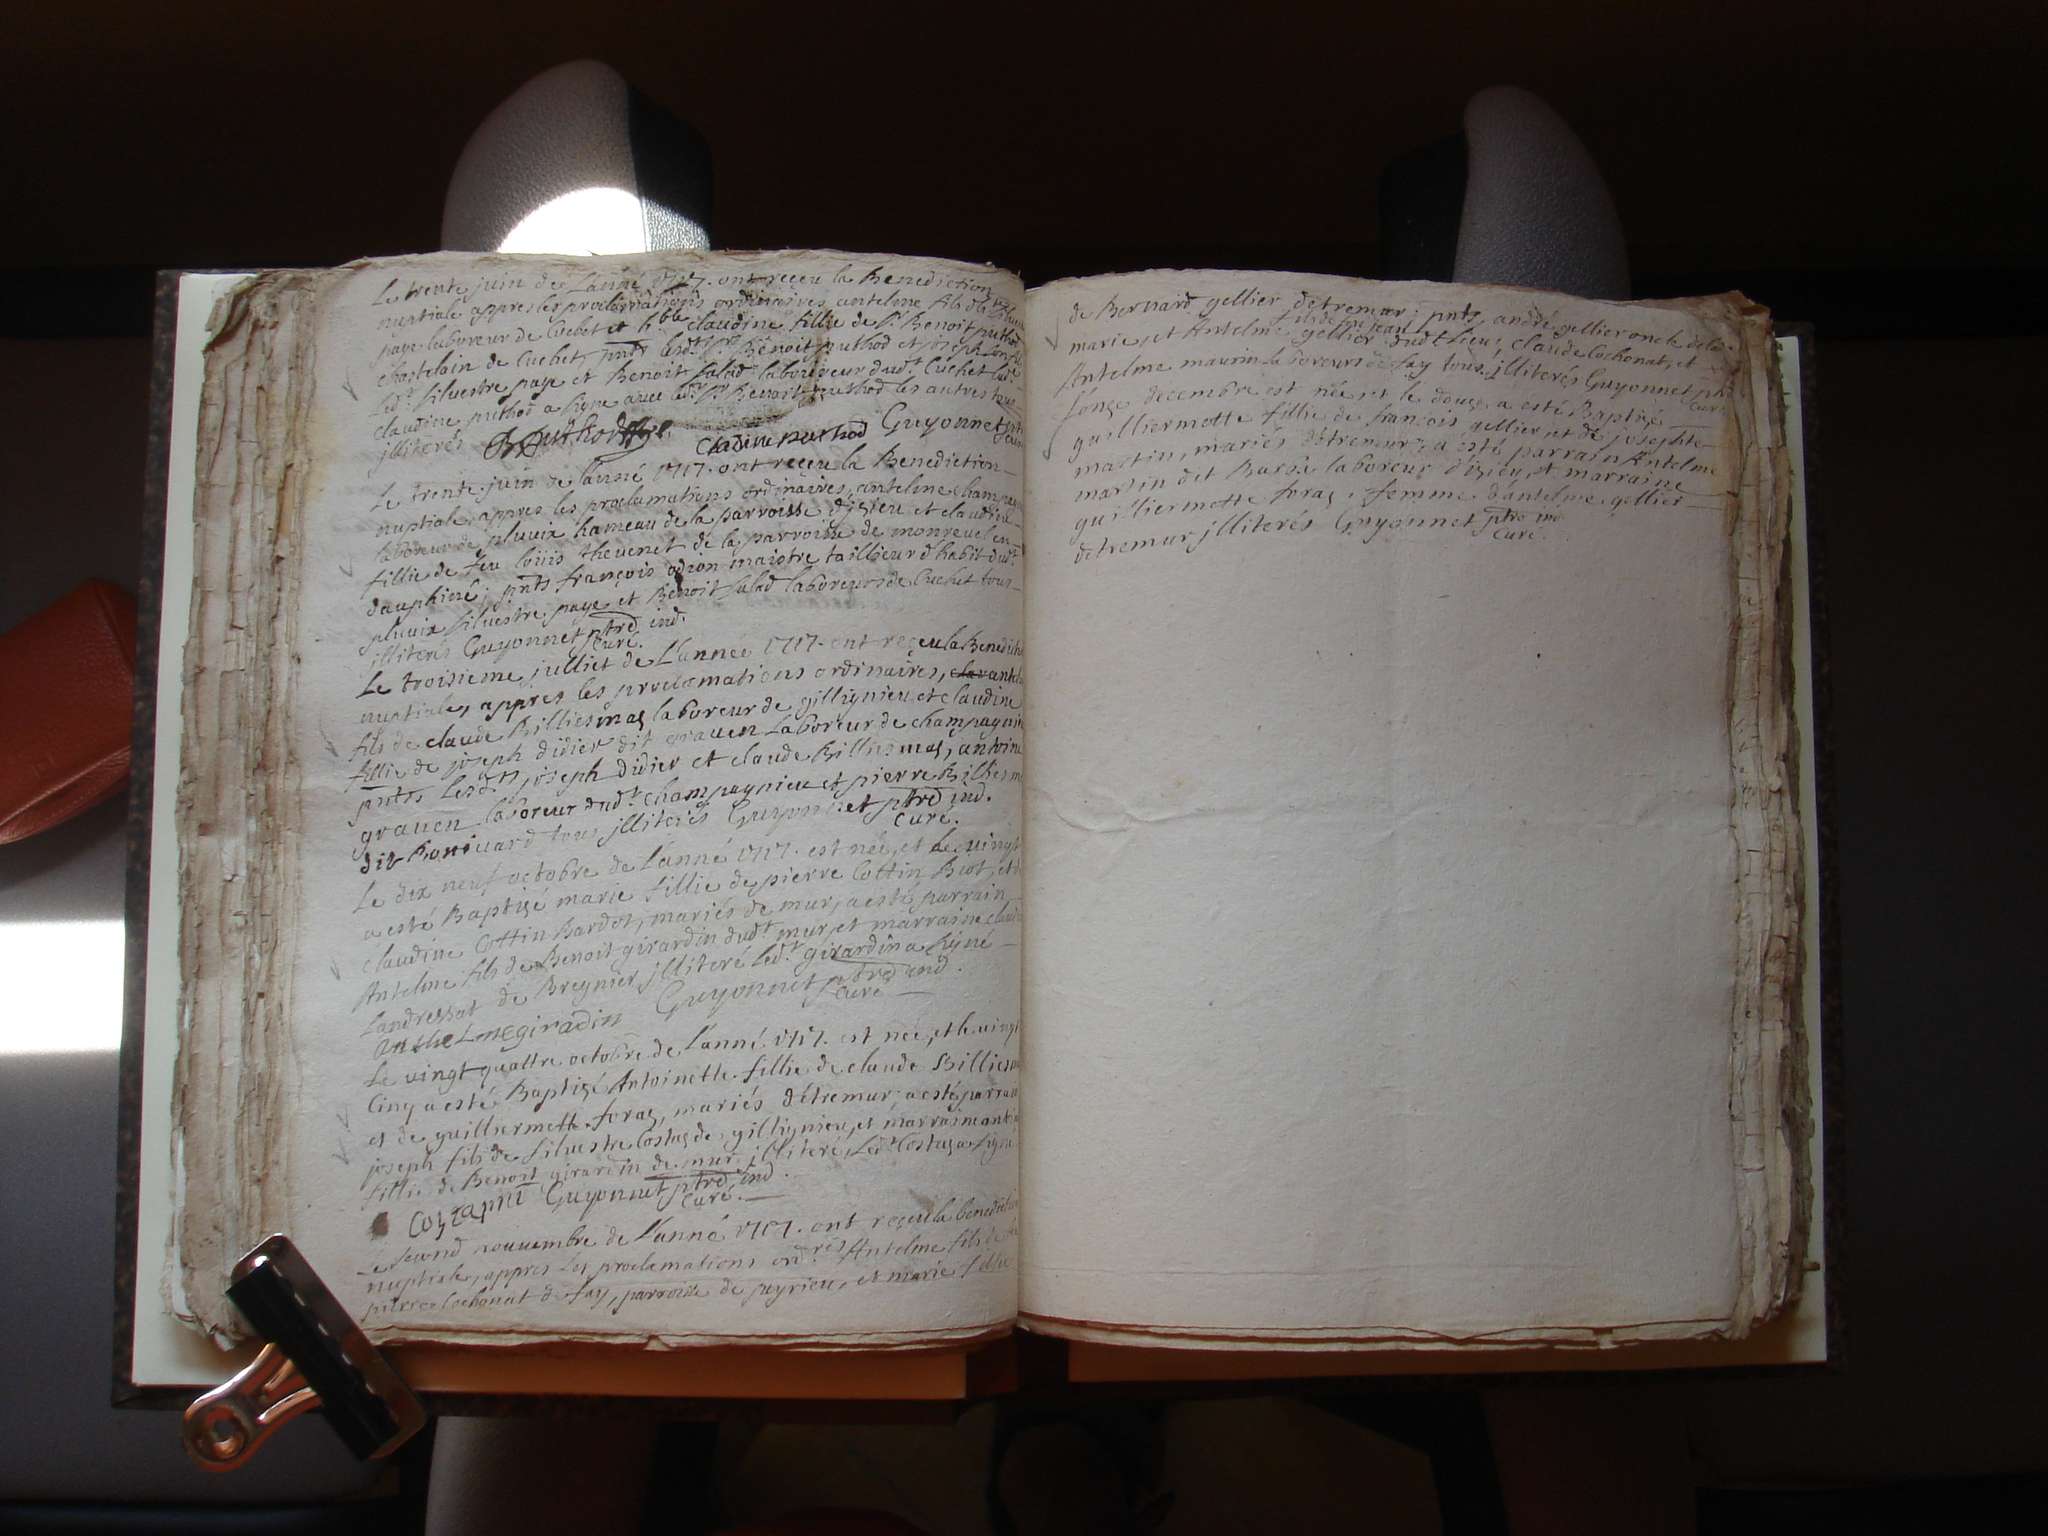 Le trente juin de L'anné 1717. ont reçeu la Benediction
nuptiale appres les proclamations ordinaires anteline fils de
paye laboreur de Cuchet et h.ble claudine fillie de Sr Benoit puthod
chastelain de Cuchet, pnts led.t Sr Benoit puthod et joseph
Led.t silvestre paye et Benoit salad laboureur dud.t Cuchet lad.t
claudine puthod a signé avec led.t Sr Benoit puthod les autres tous
illiterés BPuthod Claudine puthod Guyonnet ptre
curé
Le trente juin de L'anné 1717. ont reçeu la Benediction
nuptiale, appres les proclamations ordinaires, antelme champ
laboreur de pluvix hameau de la parroisse d'isieu et claudine
fillie de feu loüis thevenet de la parroisse de monrevel en
dauphiné; pnts françois odron maistre taillieur d'habit dud.t
pluvix silvestre paye et Benoit salad laboreurs de Cuchet tous
illiterés Guyonnet ptre ind.
curé.
Le troisieme julliet de L'année 1717. ont reçeu la Benedict
nuptiale, appres les proclamations ordinaires, antel
fils de claude Billiemaz laboreur de gillignieu et claudine
fillie de joseph didier dit graven Laboreur de champagnieu
pntts Lesd.ts joseph didier et claude Billiemaz, antoine
graven laboreur dud.t champagnieu et pierre Billiem
dit Bonivard tous illiterés Guyonnet ptre ind.
curé.
Le dix neuf octobre de L'anné 1717. est née, et Le vingt
a esté Baptizé marie fillie de pierre Cottin Biot, et
claudine Cottin Bardot, mariés de mur, a esté parrain
Antelme fils de Benoit girardin dud.t mur, et marraine claud
Landressat de Bregnier, illiteré Led.t girardin a signé
Anthelme giradin Guyonnet ptre ind.
curé
Le vingt quattre octobre de L'anné 1717. est née, et le vingt
Cinq a esté Baptizé Antoinette fillie de claude Billiem
et de guilliermette foraz, mariés d'étremur; a esté parrain
joseph fils de silvestre Costaz de gillignieu, et marraine
fillie de Benoit girardin de mur, illiteré, Led.t Costaz a signé
Guyonnet ptre ind.
curé.
Le second nouvembre de L'anné 1717. ont reçeu la benedict
nuptiale, appres Les proclamations ord.res Antelme fils de
pierre Cochonat de fay, parroisse de peyrieu, et marie fillie
de Bernard gellier detremur; pnts, andré gellier oncle de la
fils de feu jean
marie, et Antelme gellier dud.t lieu, claude Cochonat, et
Antelme maurin laboreurs de fay tous illiterés Guyonnet ptre
curé
L'onze decembre est née, et le douze a esté Baptizé
guilliermette fillie de françois gellier et de josephte
martin, mariés d'etremur; a esté parrain Antelme
martin dit Barbe laboreur d'izieu, et marraine
guilliermette foraz, femme d'antelme gellier
detremur illiterés Guyonnet ptre ind
curé.